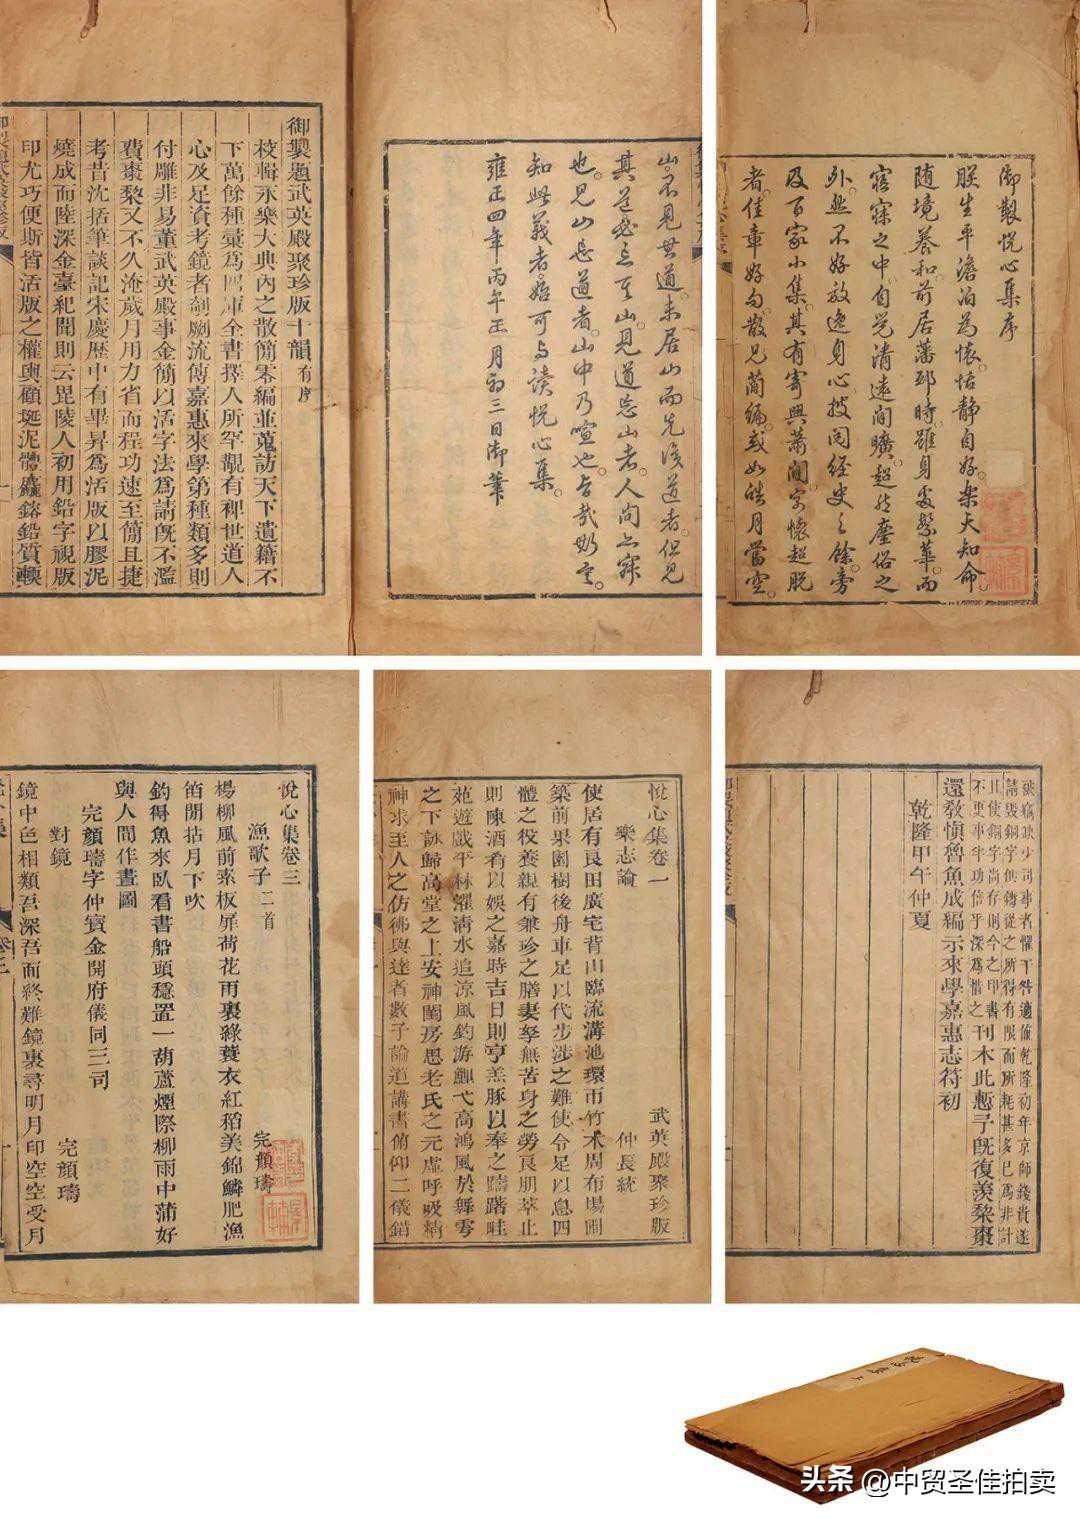 御製悅心集序
朕生平澹泊為懷恬靜自好樂天知命
隨境養和前居藩邸時雖身處繁華而
寤寐之中自覺清遠閒曠超然塵俗之
外然不好放逸身心披閱經史之餘旁
及百家小集其有寄興蕭閒寓懷超脫
者佳章好句散見簡編或如皓月當空
山不見其道未居山而先後道者但見
其道必忘其山見道忘山者人間亦寂
也見山忘道者山中乃喧也旨哉斯言
知此義者始可與讀悅心集
雍正四年丙午正月初三日御筆
御製題武英殿聚珍版十韻有序
校輯永樂大典內之散簡零編並蒐訪天下遺籍不
下萬餘種彙為四庫全書擇人所罕覯有裨世道人
心及足資考鏡者剞劂流傳嘉惠來學第種類多則
付雕非易董武英殿事金簡以活字法為請既不濫
費棗棃又不久淹歲月用力省而程功速至簡且捷
考昔沈括筆談記宋慶歷中有畢昇為活版以膠泥
燒成而陸深金臺紀聞則云毘陵人初用鉛字視版
印尤巧便斯皆活版之權輿顧埏泥體麤鎔鉛質輭
被竊缺少司事者懼干咎適值乾隆初年京師錢貴遂
請毀銅字供鑄從之所得有限而所耗甚多已為非計
且使銅字尚存則今之印書
不更事半功倍乎深為惜之
刊木此慙予既復羨棃棗
還教慎魯魚成編示來學嘉惠志符初
乾隆甲午仲夏
悅心集卷一
武英殿聚珍版
樂志論
仲長統
使居有良田廣宅背山臨流溝池環帀竹木周布場圃
築前果園樹後舟車足以代步涉之難使令足以息四
體之役養親有兼珍之膳妻孥無苦身之勞良朋萃止
則陳酒肴以娛之嘉時吉日則亨羔豚以奉之躊躇畦
苑遊戲平林濯清水追涼風釣游鯉弋高鴻風於舞雩
之下詠歸高堂之上安神閨房思老氏之元虛呼吸精
神求至人之仿彿與達者數子論道講書俯仰二儀錯
悅心集卷三
漁歌子二首
完顏璹
楊柳風前素板扉荷花雨裏綠蓑衣紅稻美錦鱗肥漁
笛閒拈月下吹
釣得魚來臥看書船頭穩置一葫蘆煙際柳雨中蒲好
與人間作畫圖
完顏璹字仲寶金開府儀同三司
對鏡
完顏璹
鏡中色相類吾深吾面終難鏡裏尋明月印空空受月
卷三
頭条 @中贸圣佳拍卖